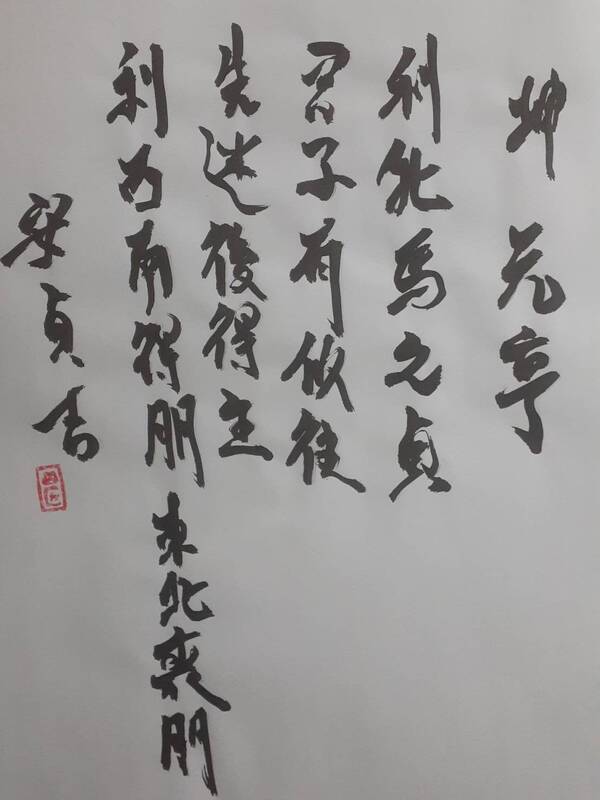 坤 元亨
利牝馬之貞
君子有攸往
先迷後得主
利西南得朋 東北喪朋
梁貞書